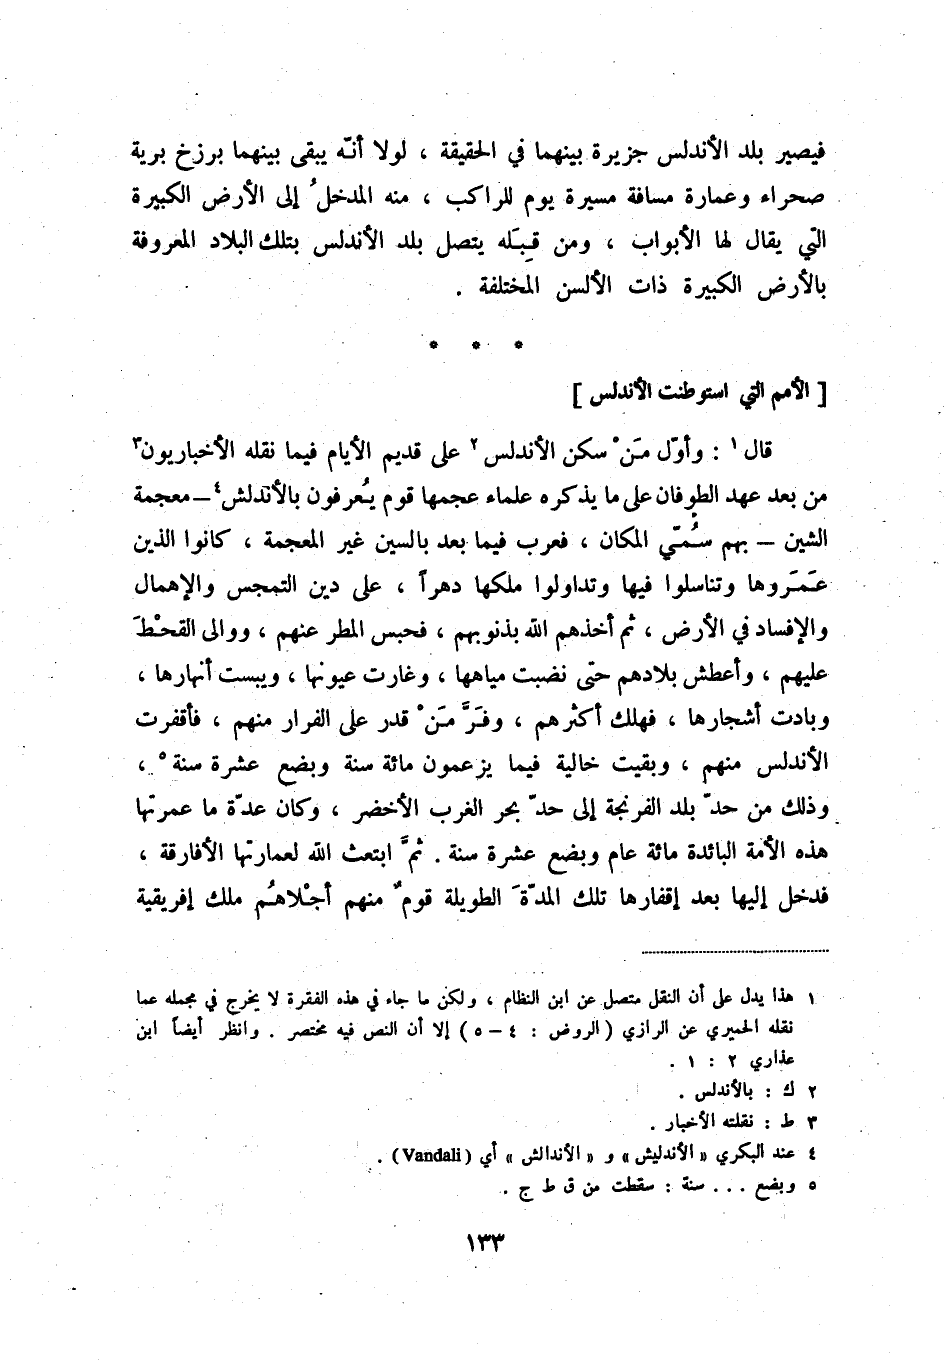 فيصير بلد الأندلس جزيرة بينهما في الحقيقة ، لولا أنّه يبقى بينهما برزخ برية
صحراء وعمارة مسافة مسيرة يوم للراكب ، منه المدخلُ إلى الأرض الكبيرة
التي يقال لها الأبواب ، ومن قِبَله يتصل بلد الأندلس بتلك البلاد المعروفة
بالأرض الكبيرة ذات الألسن المختلفة .
* * *
[ الأمم التي استوطنت الأندلس ]
قال ١ : وأوّل مَنْ سكن الأندلس ٢ على قديم الأيام فيما نقله الأخباريون ٣
من بعد عهد الطوفان على ما يذكره علماء عجمها قوم يُعرفون بالأندلش ٤ – معجمة
الشين – بهم سُمّي المكان ، فعرب فيما بعد بالسين غير المعجمة ، كانوا الذين
عَمَروها وتناسلوا فيها وتداولوا ملكها دهراً ، على دين التمجس والإهمال
والإفساد في الأرض ، ثم أخذهم الله بذنوبهم ، فحبس المطر عنهم ، ووالى القحْطَ
عليهم ، وأعطش بلادهم حتى نضبت مياهها ، وغارت عيونها ، ويبست أنهارها ،
وبادت أشجارها ، فهلك أكثرهم ، وفَرَّ مَنْ قدر على الفرار منهم ، فأقفرت
الأندلس منهم ، وبقيت خالية فيما يزعمون مائة سنة وبضع عشرة سنة ٥ ،
وذلك من حدّ بلد الفرنجة إلى حدّ بحر الغرب الأخضر ، وكان عدّة ما عمرتها
هذه الأمة البائدة مائة عام وبضع عشرة سنة . ثمَّ ابتعث الله لعمارتها الأفارقة ،
فدخل إليها بعد إقفارها تلك المدّةَ الطويلة قومٌ منهم أجْلاهُم ملك إفريقية
١ هذا يدل على أن النقل متصل عن ابن النظام ، ولكن ما جاء في هذه الفقرة لا يخرج في مجمله عما
نقله الحميري عن الرازي ( الروض : ٤ – ٥ ) إلا أن النص فيه مختصر . وانظر أيضاً ابن
عذاري ٢ : ١ .
٢ ك : بالأندلس .
٣ ط : نقلته الأخبار .
٤ عند البكري « الأندليش » و « الأندالش » أي ( Vandali ) .
٥ وبضع . . . سنة : سقطت من ق ط ج .
١٣٣